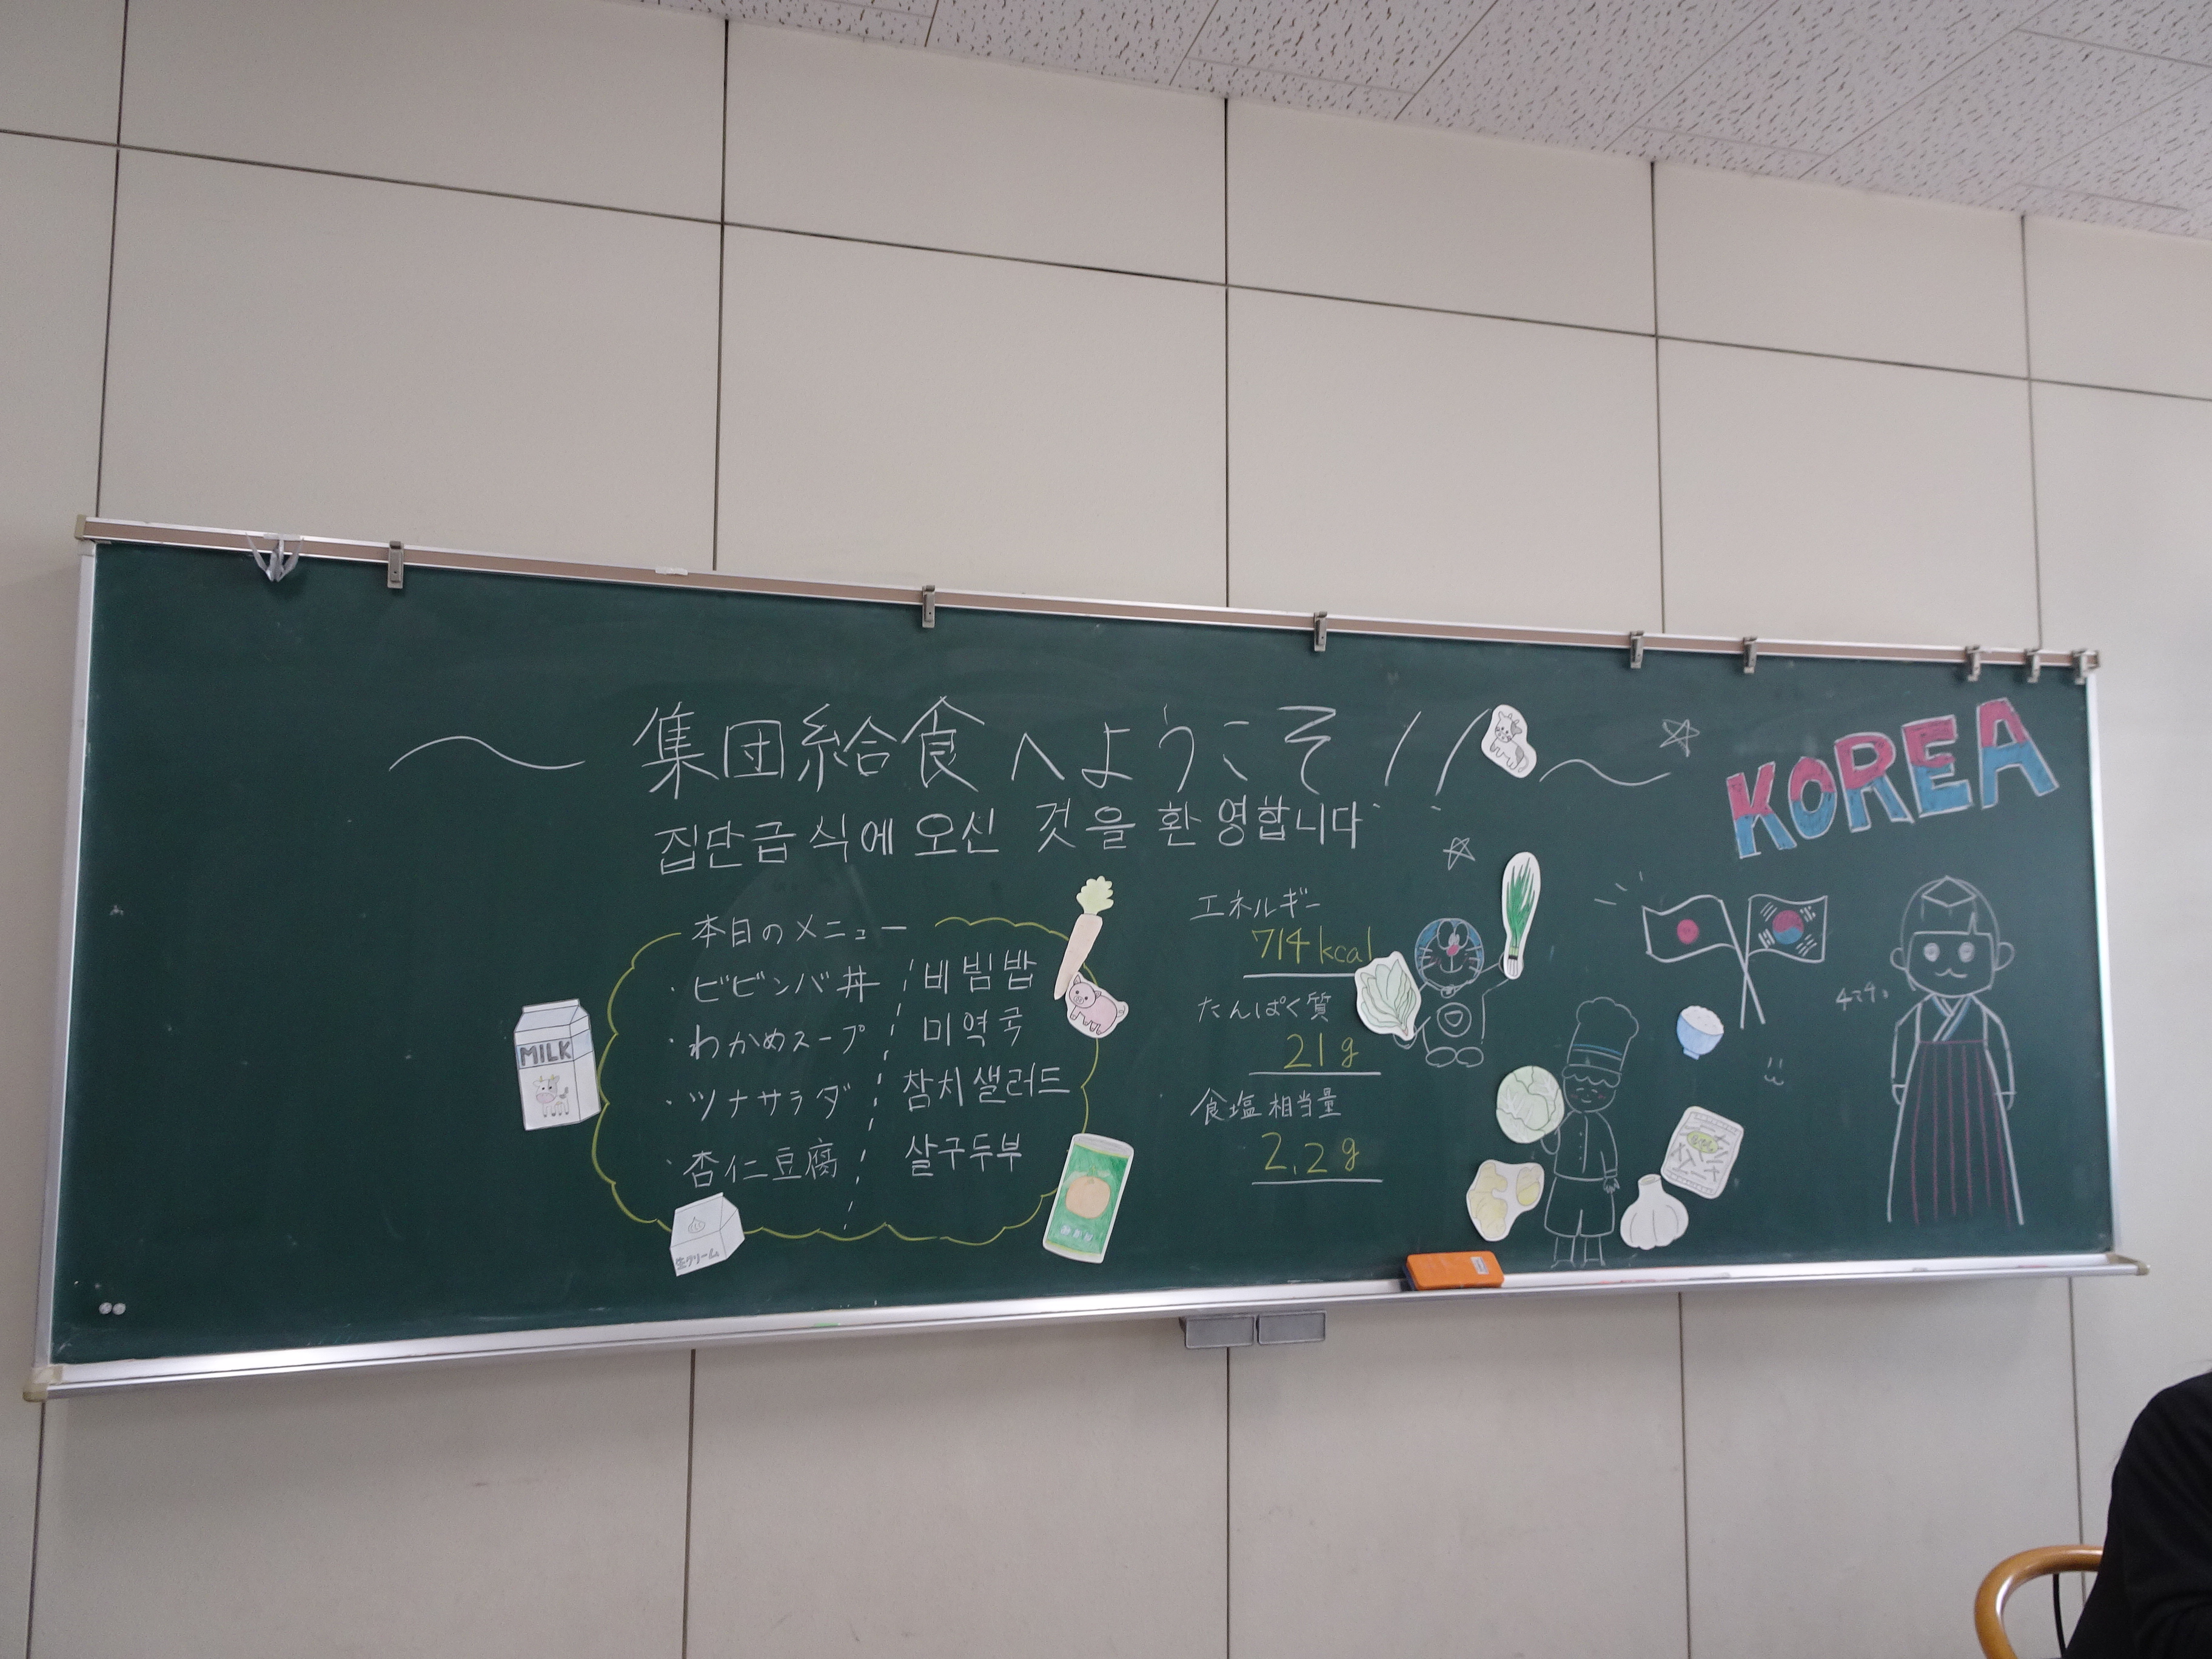 〜 集団給食へようこそ!! 〜
집단급식에 오신 것을 환영합니다
KOREA
本日のメニュー
・ビビンバ丼 비빔밥
・わかめスープ 미역국
・ツナサラダ 참치샐러드
・杏仁豆腐 살구두부
エネルギー
714kcal
たんぱく質
21g
食塩相当量
2.2g
MILK
生クリーム